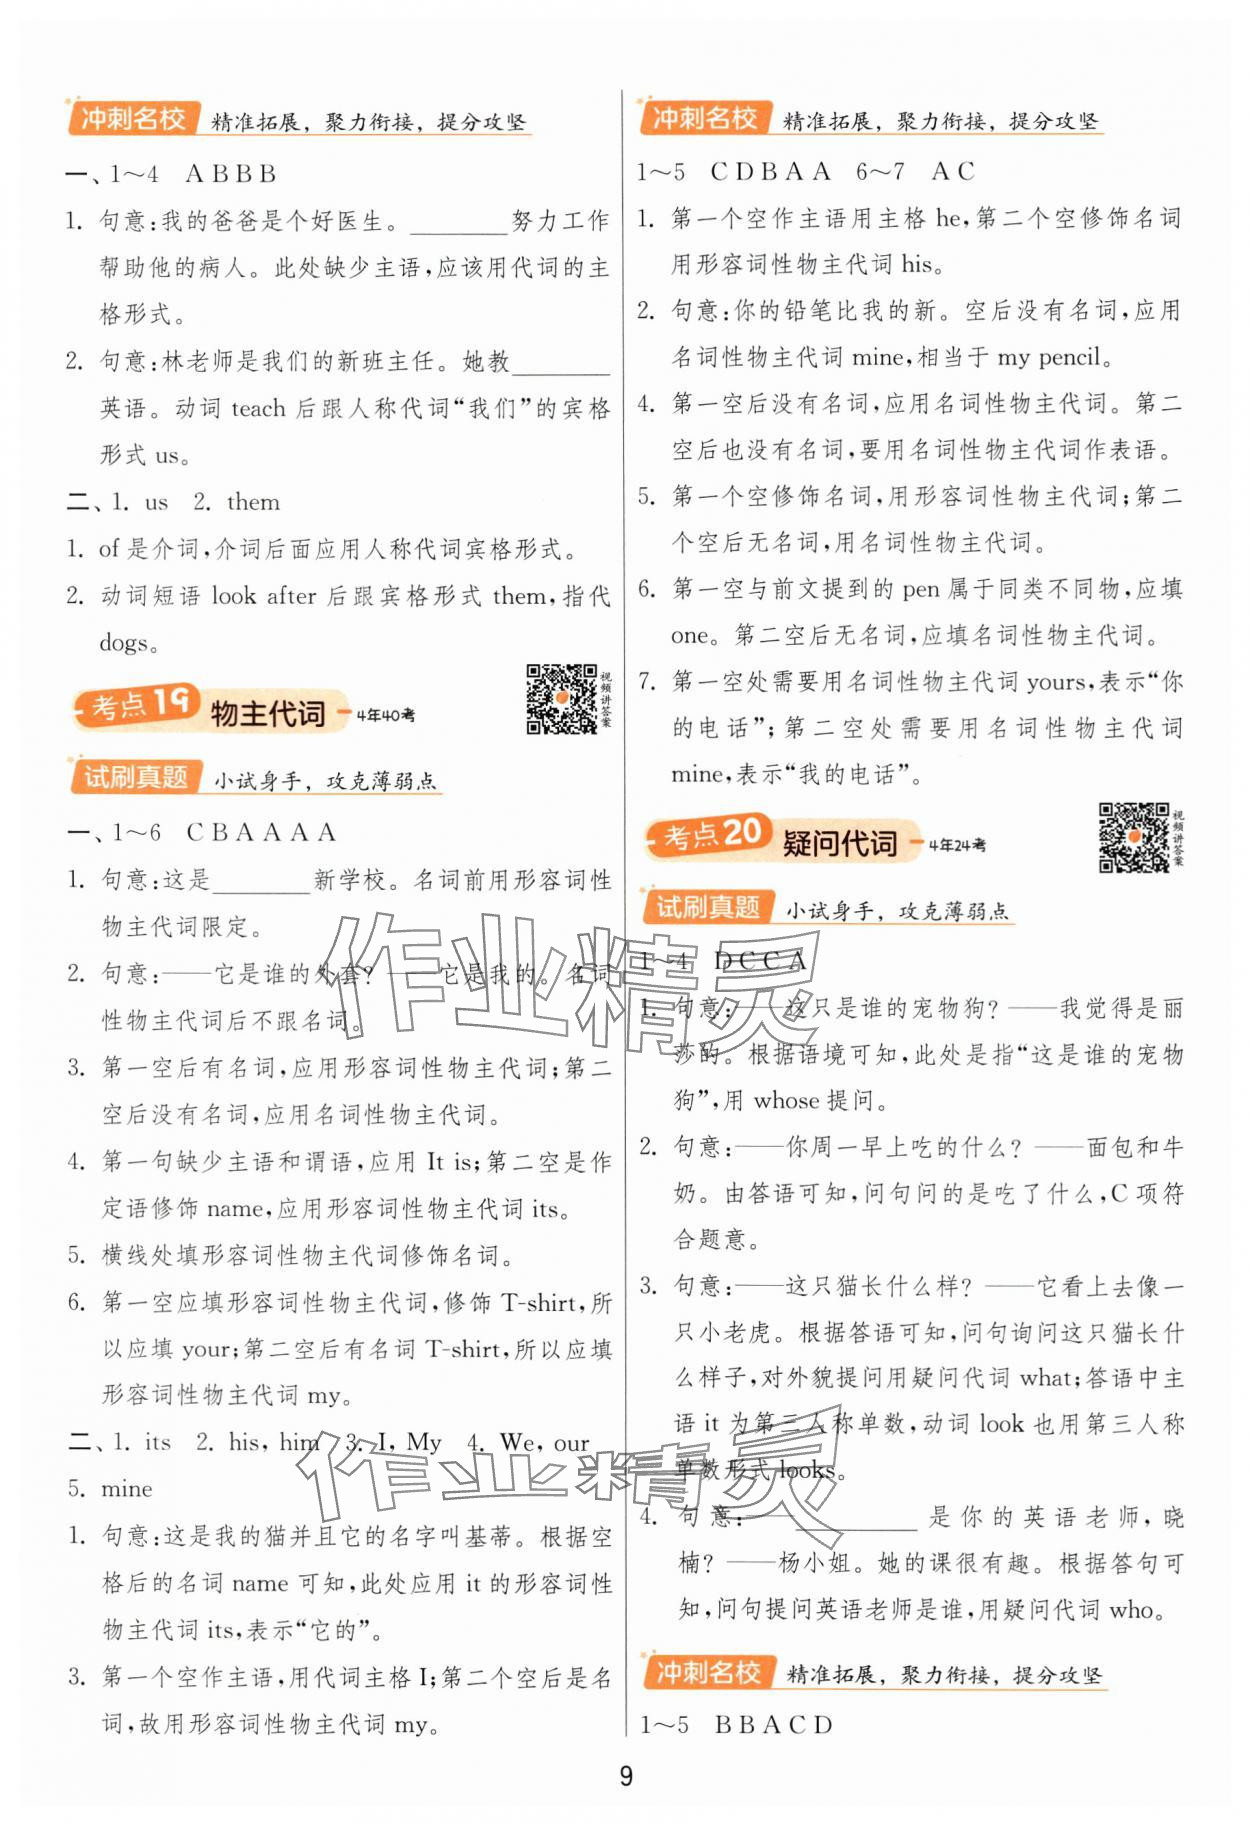 冲刺名校 精准拓展，聚力衔接，提分攻坚
一、1～4 A B B B
1. 句意:我的爸爸是个好医生。________努力工作
帮助他的病人。此处缺少主语,应该用代词的主
格形式。
2. 句意:林老师是我们的新班主任。她教________
英语。动词 teach 后跟人称代词“我们”的宾格
形式 us。
二、1. us 2. them
1. of是介词,介词后面应用人称代词宾格形式。
2. 动词短语 look after 后跟宾格形式 them,指代
dogs。
考点19 物主代词 4年40考
视频讲答案
试刷真题 小试身手，攻克薄弱点
一、1～6 C B A A A A
1. 句意:这是________新学校。名词前用形容词性
物主代词限定。
2. 句意:——它是谁的外套? ——它是我的。名词
性物主代词后不跟名词。
3. 第一空后有名词,应用形容词性物主代词;第二
空后没有名词,应用名词性物主代词。
4. 第一句缺少主语和谓语,应用 It is;第二空是作
定语修饰 name,应用形容词性物主代词 its。
5. 横线处填形容词性物主代词修饰名词。
6. 第一空应填形容词性物主代词,修饰 T-shirt,所
以应填 your;第二空后有名词 T-shirt,所以应填
形容词性物主代词 my。
二、1. its 2. his, him 3. I, My 4. We, our
5. mine
1. 句意:这是我的猫并且它的名字叫基蒂。根据空
格后的名词 name 可知,此处应用 it 的形容词性
物主代词 its,表示“它的”。
3. 第一个空作主语,用代词主格 I;第二个空后是名
词,故用形容词性物主代词 my。
冲刺名校 精准拓展，聚力衔接，提分攻坚
1～5 C D B A A 6～7 A C
1. 第一个空作主语用主格 he,第二个空修饰名词
用形容词性物主代词 his。
2. 句意:你的铅笔比我的新。空后没有名词,应用
名词性物主代词 mine,相当于 my pencil。
4. 第一空后没有名词,应用名词性物主代词。第二
空后也没有名词,要用名词性物主代词作表语。
5. 第一个空修饰名词,用形容词性物主代词;第二
个空后无名词,用名词性物主代词。
6. 第一空与前文提到的 pen 属于同类不同物,应填
one。第二空后无名词,应填名词性物主代词。
7. 第一空处需要用名词性物主代词 yours,表示“你
的电话”;第二空处需要用名词性物主代词
mine,表示“我的电话”。
考点20 疑问代词 4年24考
视频讲答案
试刷真题 小试身手，攻克薄弱点
1～4 D C C A
1. 句意:——这只是谁的宠物狗? ——我觉得是丽
莎的。根据语境可知,此处是指“这是谁的宠物
狗”,用 whose 提问。
2. 句意:——你周一早上吃的什么? ——面包和牛
奶。由答语可知,问句问的是吃了什么,C 项符
合题意。
3. 句意:——这只猫长什么样? ——它看上去像一
只小老虎。根据答语可知,问句询问这只猫长什
么样子,对外貌提问用疑问代词 what;答语中主
语 it 为第三人称单数,动词 look 也用第三人称
单数形式 looks。
4. 句意:——________是你的英语老师,晓
楠? ——杨小姐。她的课很有趣。根据答句可
知,问句提问英语老师是谁,用疑问代词 who。
冲刺名校 精准拓展，聚力衔接，提分攻坚
1～5 B B A C D
9
作业精灵
作业精灵